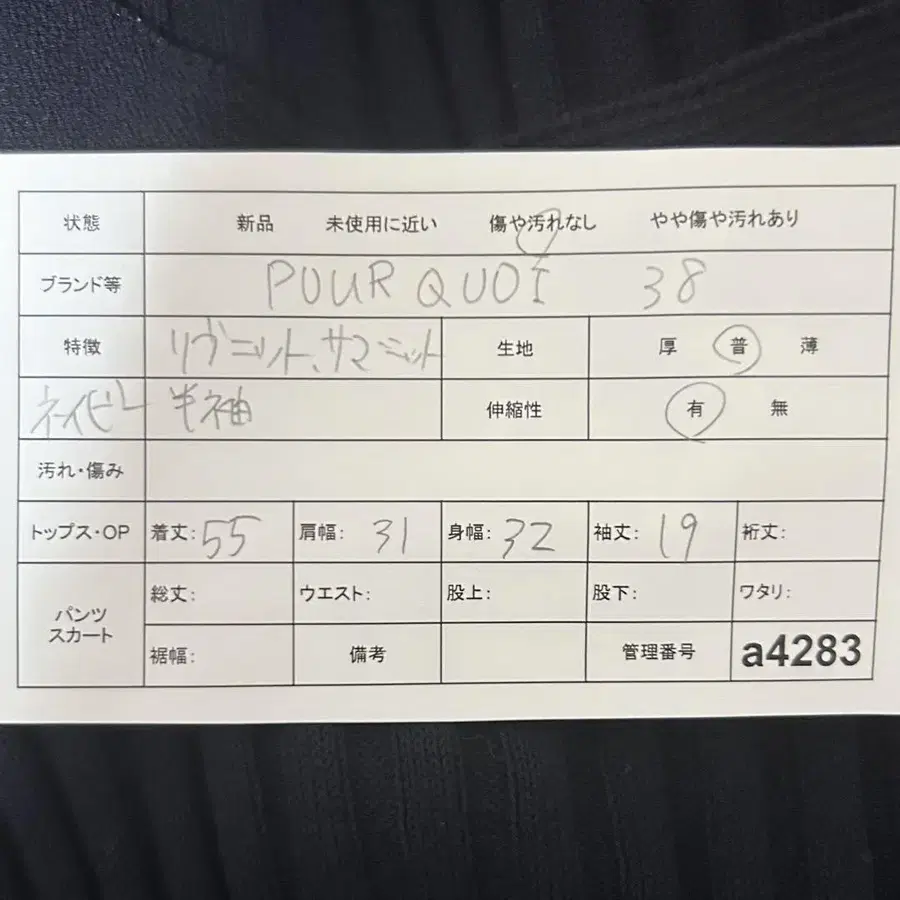 状態 新品 未使用に近い 傷や汚れなし やや傷や汚れあり
ブランド等 POUR QUOI 38
特徴 リヴニット、サマーニット 生地 厚 普 薄
ネイビー 半袖 伸縮性 有 無
汚れ・傷み
トップス・OP 着丈:55 肩幅: 31 身幅: 32 袖丈: 19 裄丈:
パンツ スカート 総丈: ウエスト: 股上: 股下: ワタリ:
裾幅: 備考 管理番号 a4283